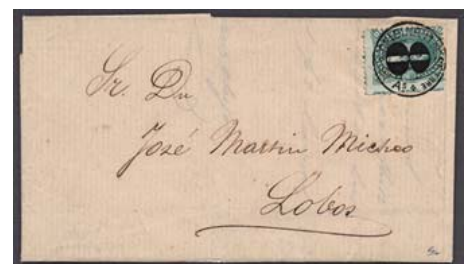 Sr. Dn
José Martin Micheo
Lobos